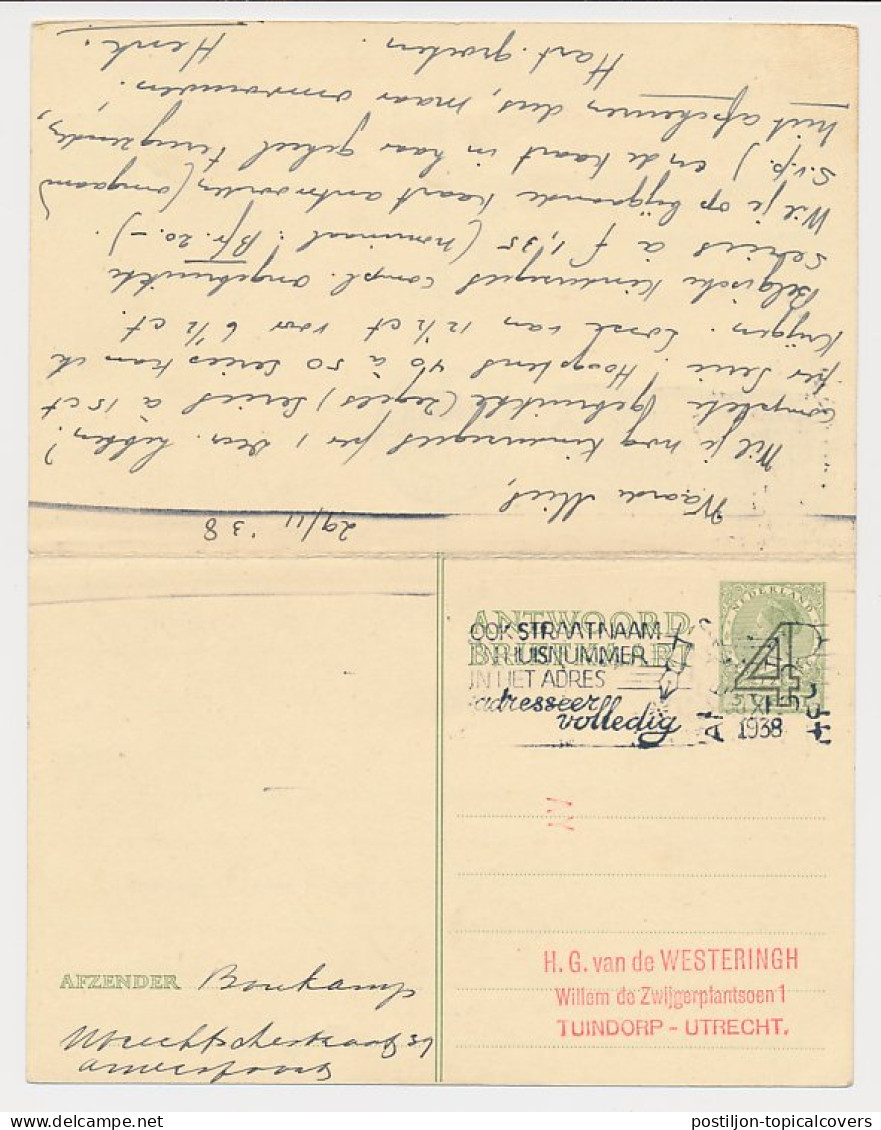 29/11 '38
Waarde Miel,
Wil je nog kinderzegels per 1 Dec. hebben?
Complete gebruikte (zegels) series à 15 ct
per serie. Hoogstens 40 à 50 series kan ik
krijgen. Losse van 12½ ct voor 6½ ct.
Belgische kinderzegels compl. ongebruikte
series à f 1,35 (nominaal: Bfr. 20.-).
Wil je op bijgaande kaart antwoorden (omgaand
s.v.p.) en de kaart in haar geheel terugzenden,
niet afscheuren dus, maar omvouwen.
Hart. groeten
Henk.
NEDERLAND
ANTWOORD
BRIEFKAART
OOK STRAATNAAM
HUISNUMMER
IN HET ADRES
adresseer
volledig
4
XI
1938
AFZENDER Boukamp
Utrechtschestraat 31
Amersfoort
H. G. van de WESTERINGH
Willem de Zwijgerplantsoen 1
TUINDORP - UTRECHT.
postiljon-topicalcovers